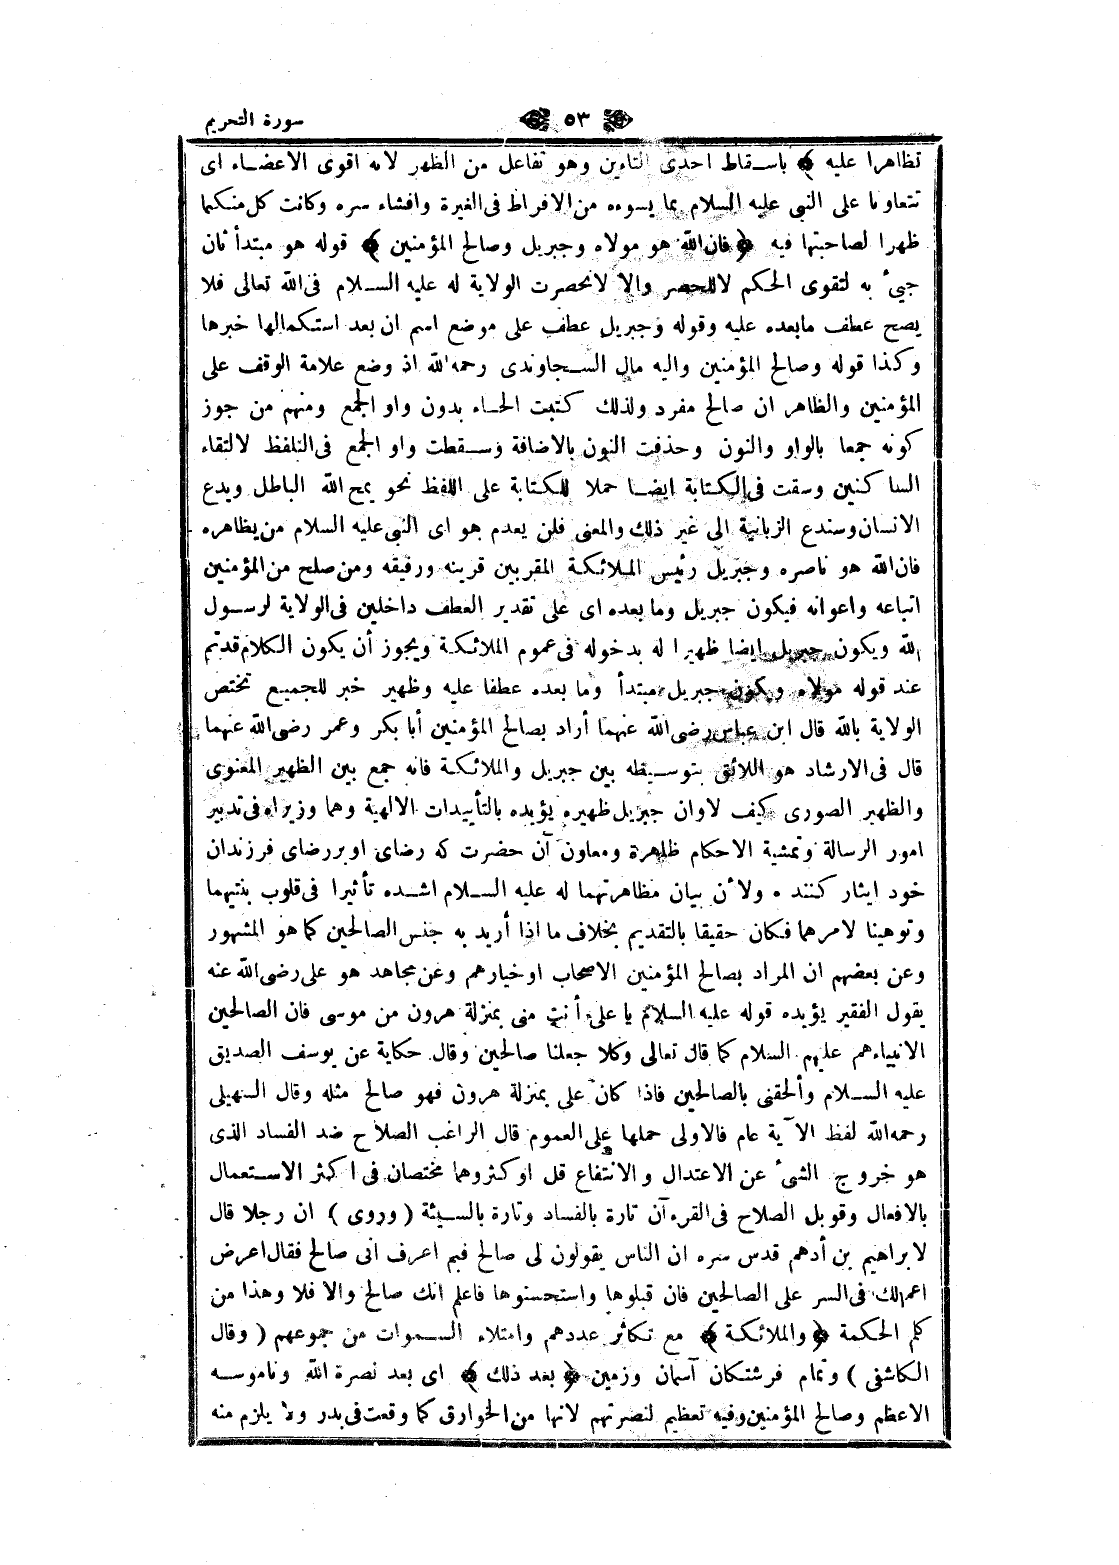 سورة التحريم
٥٣
تظاهرا عليه ﴾ باسقاط احدى التاءين وهو تفاعل من الظهر لانه اقوى الاعضاء اى
تتعاونا على النبى عليه السلام بما يسوءه من الافراط فى الغيرة وافشاء سره وكانت كل منكما
ظهرا لصاحبتها فيه ﴿ فان الله هو مولاه وجبريل وصالح المؤمنين ﴾ قوله هو مبتدأ ثان
جيئ به لتقوى الحكم لا للحصر والا لانحصرت الولاية له عليه السلام فى الله تعالى فلا
يصح عطف مابعده عليه وقوله وجبريل عطف على موضع اسم ان بعد استكمالها خبرها
وكذا قوله وصالح المؤمنين واليه مال السجاوندى رحمه الله اذ وضع علامة الوقف على
المؤمنين والظاهر ان صالح مفرد ولذلك كتبت الحاء بدون واو الجمع ومنهم من جوز
كونه جمعا بالواو والنون وحذفت النون بالاضافة وسقطت واو الجمع فى التلفظ لالتقاء
الساكنين وسقت فى الكتابة ايضا حملا للكتابة على اللفظ نحو يمح الله الباطل ويدع
الانسان وسندع الزبانية الى غير ذلك والمعنى فلن يعدم هو اى النبى عليه السلام من يظاهره
فان الله هو ناصره وجبريل رئيس الملائكة المقربين قرينه ورفيقه ومن صلح من المؤمنين
اتباعه واعوانه فيكون جبريل وما بعده اى على تقدير العطف داخلين فى الولاية لرسول
الله ويكون جبريل ايضا ظهيرا له بدخوله فى عموم الملائكة ويجوز أن يكون الكلام قدتم
عند قوله مولاه ويكون جبريل مبتدأ وما بعده عطفا عليه وظهير خبر للجميع تختص
الولاية بالله قال ابن عباس رضى الله عنهما أراد بصالح المؤمنين أبا بكر وعمر رضى الله عنهما
قال فى الارشاد هو اللائق بتوسيطه بين جبريل والملائكة فانه جمع بين الظهير المعنوى
والظهير الصورى كيف لاوان جبريل ظهيره يؤيده بالتأييدات الالهية وهما وزيراه فى تدبير
امور الرسالة وتمشية الاحكام ظاهرة ومعاون آن حضرت كه رضاى او بررضاى فرزندان
خود ايثار كنند . ولأن بيان مظاهرتهما له عليه السلام اشده تأثيرا فى قلوب بنتيهما
وتوهينا لامرهما فكان حقيقا بالتقديم بخلاف ما اذا أريد به جنس الصالحين كما هو المشهور
وعن بعضهم ان المراد بصالح المؤمنين الاصحاب او خيارهم وعن مجاهد هو على رضى الله عنه
يقول الفقير يؤيده قوله عليه السلام يا على أنت منى بمنزلة هرون من موسى فان الصالحين
الانبياء هم عليهم السلام كما قال تعالى وكلا جعلنا صالحين وقال حكاية عن يوسف الصديق
عليه السلام وألحقنى بالصالحين فاذا كان على بمنزلة هرون فهو صالح مثله وقال السهيلى
رحمه الله لفظ الآية عام فالاولى حملها على العموم قال الراغب الصلاح ضد الفساد الذى
هو خروج الشئ عن الاعتدال والانتفاع قل او كثروهما مختصان فى اكثر الاستعمال
بالافعال وقوبل الصلاح فى القرءآن تارة بالفساد وتارة بالسيئة ( وروى ) ان رجلا قال
لابراهيم بن أدهم قدس سره ان الناس يقولون لى صالح فبم اعرف انى صالح فقال اعرض
اعمالك فى السر على الصالحين فان قبلوها واستحسنوها فاعلم انك صالح والا فلا وهذا من
كلم الحكمة ﴿ والملائكة ﴾ مع تكاثر عددهم وامتلاء السموات من جموعهم ( وقال
الكاشفى ) وتمام فرشتكان آسمان وزمين ﴿ بعد ذلك ﴾ اى بعد نصرة الله وناموسه
الاعظم وصالح المؤمنين وفيه تعظيم لنصرتهم لانها من الخوارق كما وقعت فى بدر ولا يلزم منه